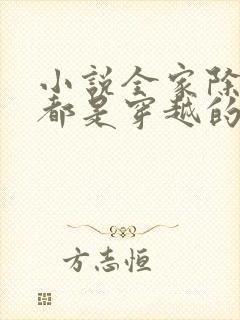 小说全家除
都是穿越的
方志恒